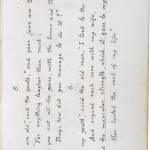 said the youth, "and your jaws are to
For anything tougher than suet;
you eat all the goose, with the bones and the
Pray, how did you manage to do it?"
6.
my youth," said the old man, "I took to the
And argued each case with my wife,
and the muscular strength, which it gave to my
Has lasted the rest of my life."